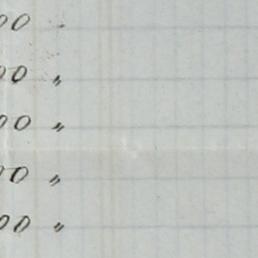 00 .
00 „
00 „
00 „
00 „